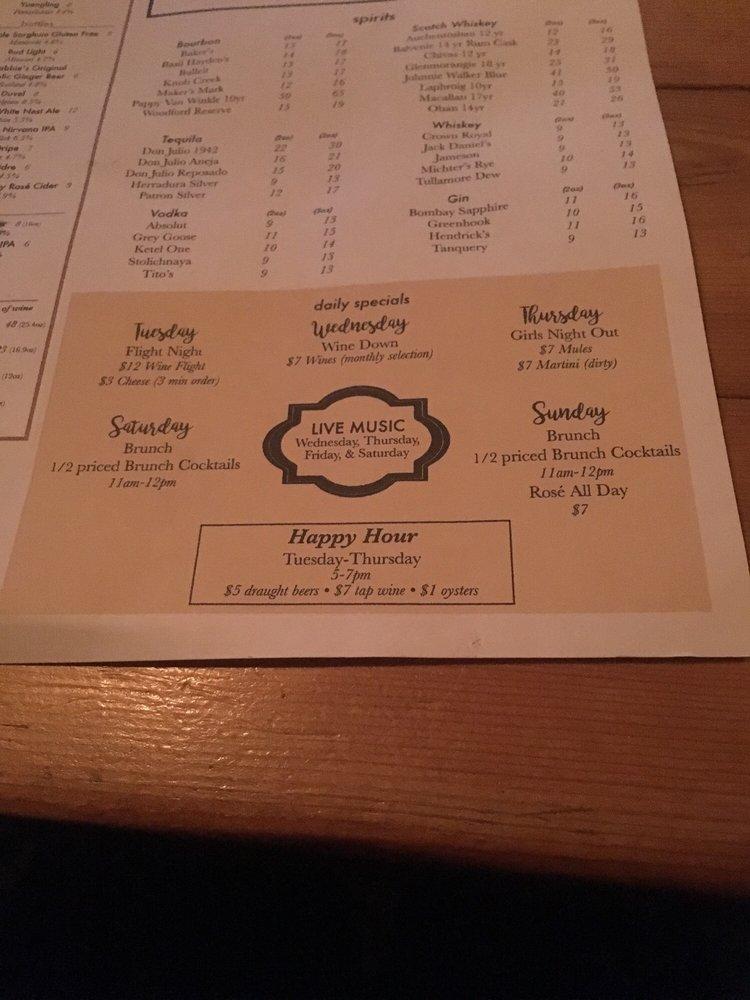 Yuengling
bottles
Sorghum Gluten Free
Bud Light 6
Original
Ginger Beer 6
Duvel
White Nest Ale 12
Nirvana IPA 9
y Rosé Cider 9
IPA 6
of wine
48 (25.4oz)
(16.9oz)
(12oz)
spirits
Bourbon (2oz) (3oz)
Baker's 13 17
Basil Hayden's 14 18
Bulleit 13 17
Knob Creek 13 17
Maker's Mark 12 16
Pappy Van Winkle 10yr 50 65
Woodford Reserve 15 19
Tequila (2oz) (3oz)
Don Julio 1942 22 30
Don Julio Aneja 16 21
Don Julio Reposado 15 20
Herradura Silver 9 13
Patron Silver 12 17
Vodka (2oz) (3oz)
Absolut 9 13
Grey Goose 11 15
Ketel One 10 14
Stolichnaya 9 13
Tito's 9 13
Scotch Whiskey (2oz) (3oz)
Auchentoshan 12 yr 12 16
Balvenie 14 yr Rum Cask 23 29
Chivas 12 yr 14 18
Glenmorangie 18 yr 25 31
Johnnie Walker Blue 41 50
Laphroig 10yr 15 19
Macallan 17yr 40 53
Oban 14yr 21 26
Whiskey (2oz) (3oz)
Crown Royal 9 13
Jack Daniel's 9 13
Jameson 9 13
Michter's Rye 10 14
Tullamore Dew 9 13
Gin (2oz) (3oz)
Bombay Sapphire 11 16
Greenhook 10 15
Hendrick's 11 16
Tanquery 9 13
daily specials
Tuesday
Flight Night
$12 Wine Flight
$3 Cheese (3 min order)
Wednesday
Wine Down
$7 Wines (monthly selection)
Thursday
Girls Night Out
$7 Mules
$7 Martini (dirty)
Saturday
Brunch
1/2 priced Brunch Cocktails
11am-12pm
LIVE MUSIC
Wednesday, Thursday,
Friday, & Saturday
Sunday
Brunch
1/2 priced Brunch Cocktails
11am-12pm
Rosé All Day
$7
Happy Hour
Tuesday-Thursday
5-7pm
$5 draught beers • $7 tap wine • $1 oysters